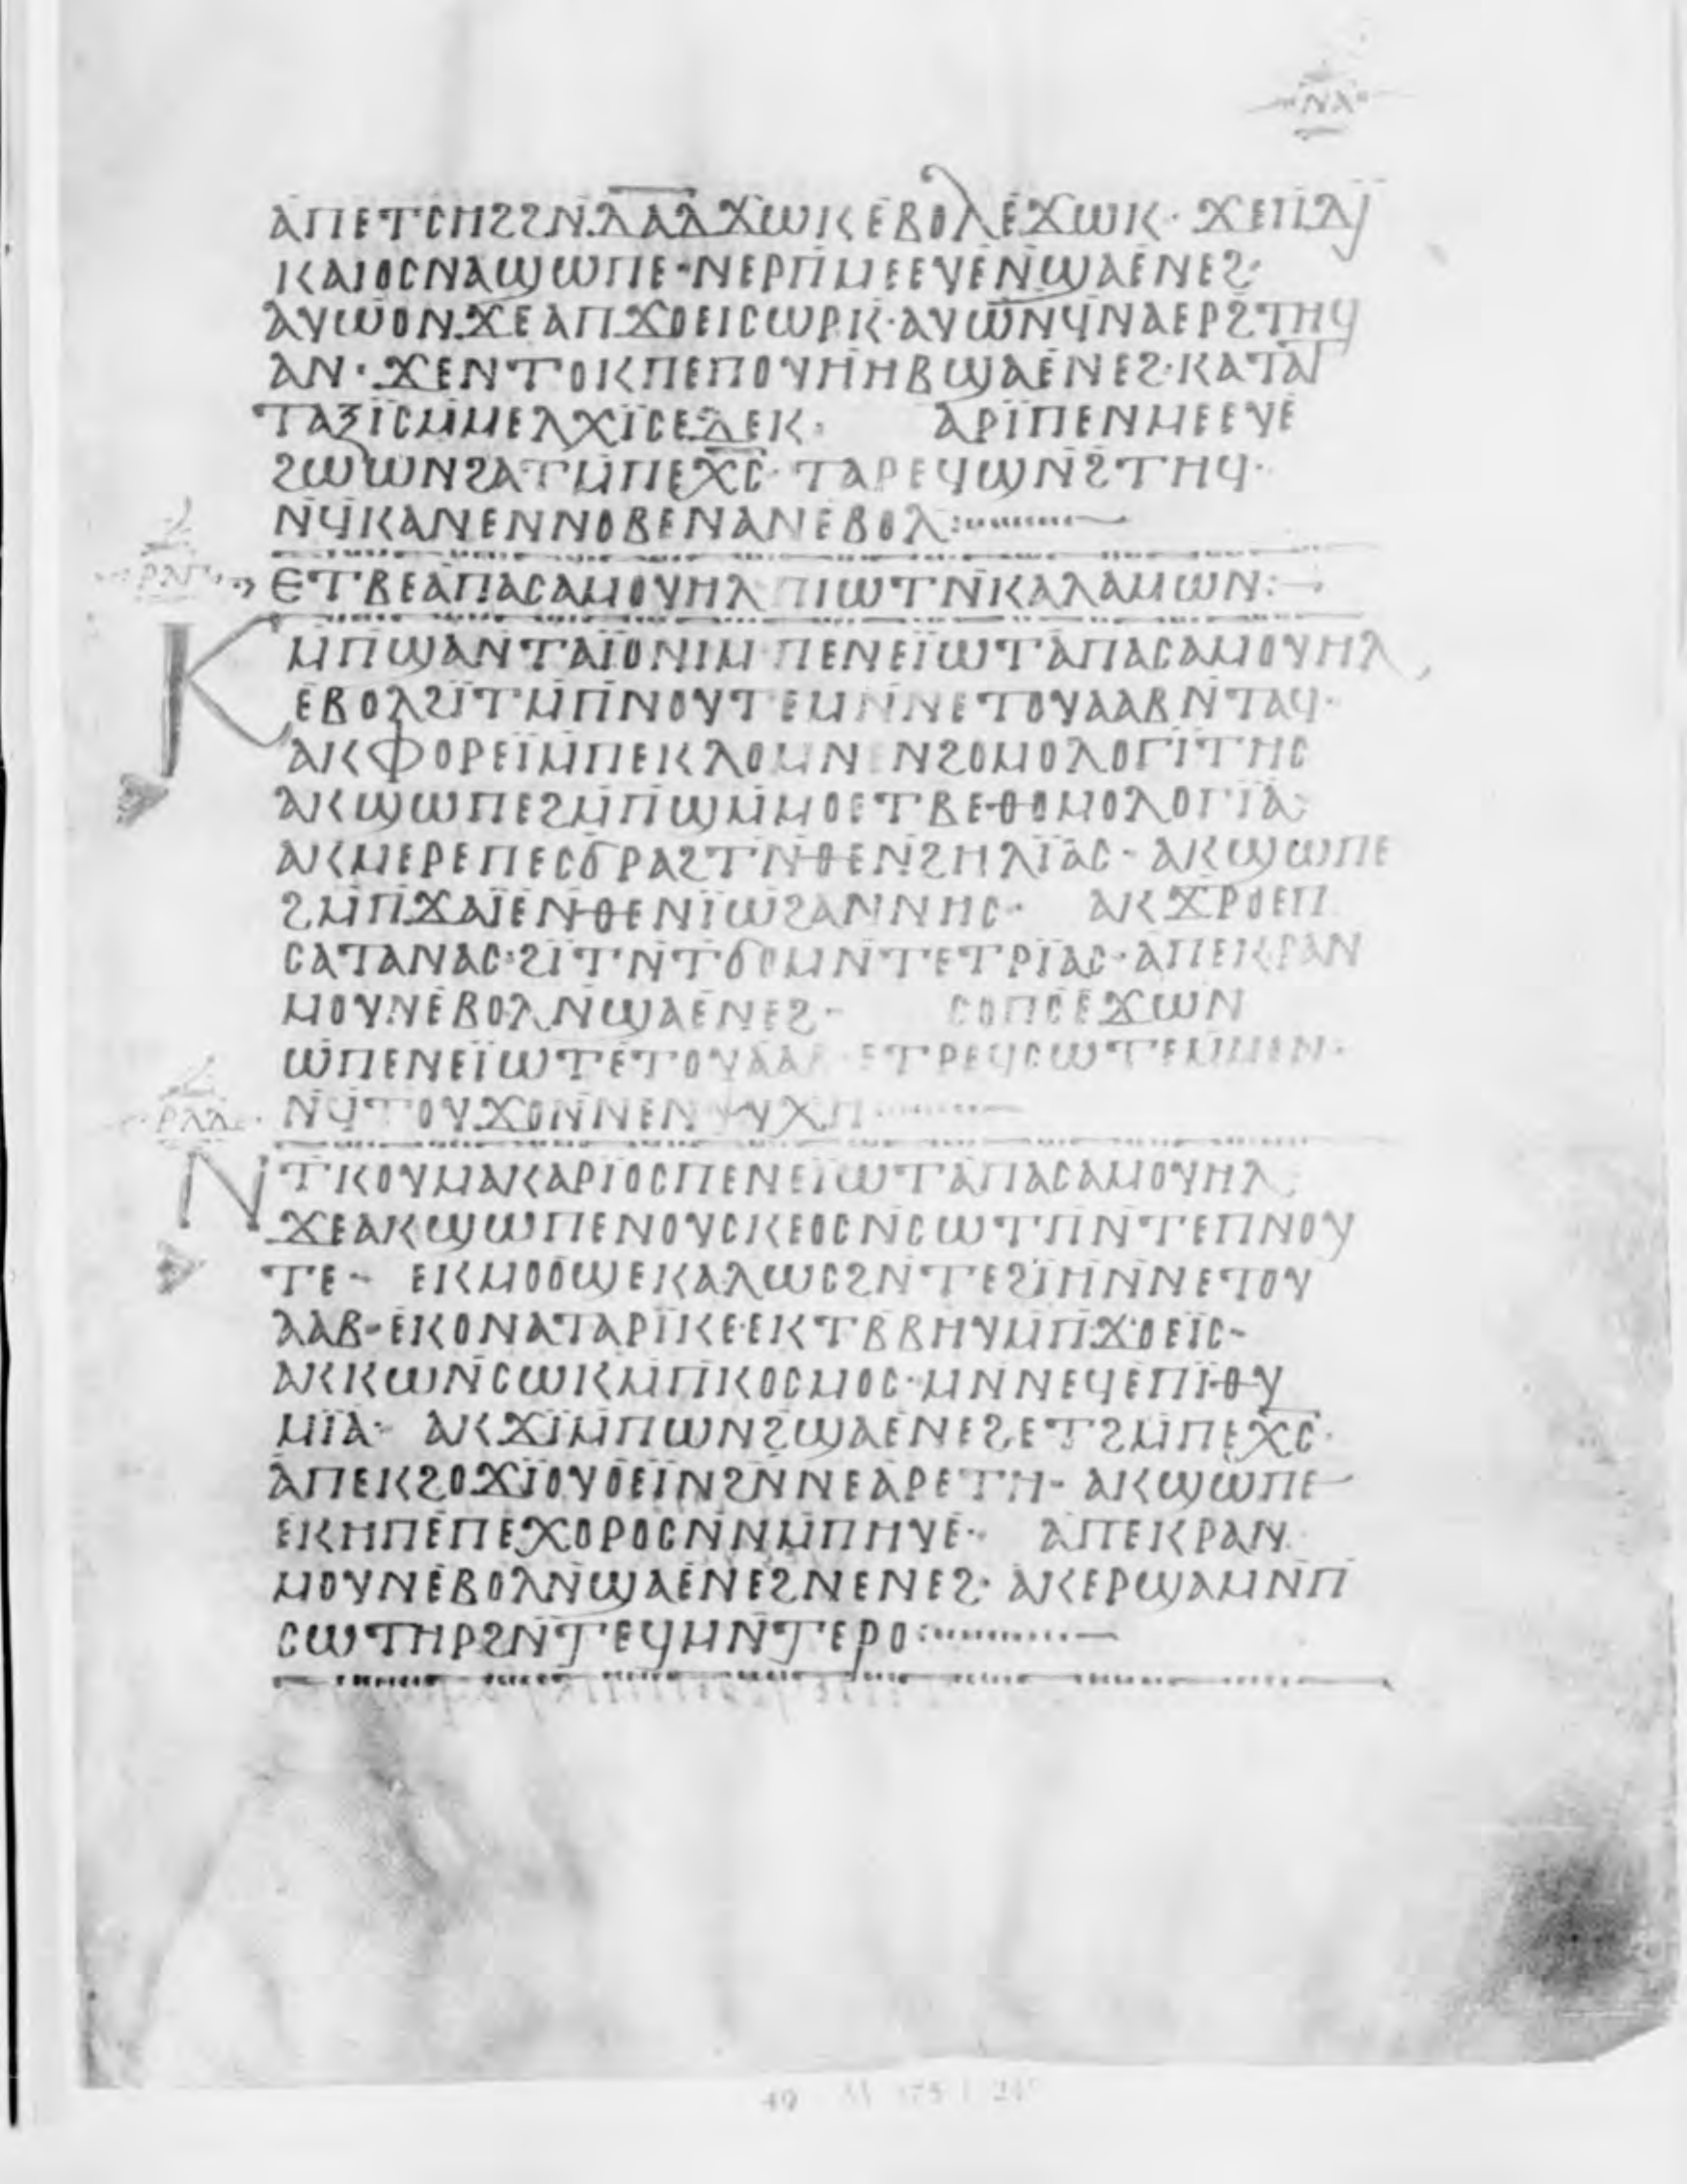 ⲚⲀ
ⲀⲠⲈⲦⲤⲎϨϨⲚⲆⲀⲆϪⲰⲔⲈⲂⲞⲖⲈϪⲰⲔ· ϪⲈⲠⲆⲒ
ⲔⲀⲒⲞⲤⲚⲀϢⲰⲠⲈ-ⲚⲈⲢⲠⲘⲈⲈⲨⲈⲚϢⲀⲈⲚⲈϨ·
ⲀⲨⲰⲞⲚ·ϪⲈⲀⲠϪⲞⲈⲒⲤⲰⲢⲔ·ⲀⲨⲰⲚϤⲚⲀⲈⲢϨⲦⲎϤ
ⲀⲚ·ϪⲈⲚⲦⲞⲔⲠⲈⲠⲞⲨⲎⲎⲂϢⲀⲈⲚⲈϨ·ⲔⲀⲦⲀ
ⲦⲀⲜⲒ̈ⲤⲘⲘⲈⲖⲬⲒ̈ⲤⲈⲆⲈⲔ· ⲀⲢⲒ̈ⲠⲈⲚⲘⲈⲈⲨⲈ
ϨⲰⲰⲚϨⲀⲦⲘⲠⲈⲬ̅Ⲥ̅· ⲦⲀⲢⲈϤϢⲚϨⲦⲎϤ·
ⲚϤⲔⲀⲚⲈⲚⲚⲞⲂⲈⲚⲀⲚⲈⲂⲞⲖ:
ⲢⲚⲄ ⲈⲦⲂⲈⲀⲠⲀⲤⲀⲘⲞⲨⲎⲖ ⲠⲒⲰⲦⲚⲔⲀⲖⲀⲘⲰⲚ:
ⲔⲘⲠϢⲀⲚⲦⲀⲒ̈ⲞⲚⲒⲘ ⲠⲈⲚⲈⲒ̈ⲰⲦⲀⲠⲀⲤⲀⲘⲞⲨⲎⲖ
ⲈⲂⲞⲖϨⲒ̈ⲦⲘⲠⲚⲞⲨⲦⲈⲘⲚⲚⲈⲦⲞⲨⲀⲀⲂⲚⲦⲀϤ·
ⲀⲔⲪⲞⲢⲈⲒ̈ⲘⲠⲈⲔⲖⲞⲘⲚ ⲚϨⲞⲘⲞⲖⲞⲄⲒ̈ⲦⲎⲤ
ⲀⲔϢⲰⲠⲈϨⲘⲠϢⲘⲘⲞⲈⲦⲂⲈⲐⲞⲘⲞⲖⲞⲄⲒ̈Ⲁ
ⲀⲔⲘⲈⲢⲈⲠⲈⲤϬⲢⲀϨⲦⲚⲐⲈⲚϨⲎⲖⲒ̈ⲀⲤ- ⲀⲔϢⲰⲠⲈ
ϨⲘⲠϪⲀⲒ̈ⲈⲚⲐⲈⲚⲒ̈ⲰϨⲀⲚⲚⲎⲤ· ⲀⲔϪⲢⲞⲈⲠ
ⲤⲀⲦⲀⲚⲀⲤ:ϨⲒ̈ⲦⲚⲦϬⲞⲘⲚⲦⲈⲦⲢⲒ̈ⲀⲤ·ⲀⲠⲈⲔⲢⲀⲚ
ⲘⲞⲨⲚⲈⲂⲞⲖⲚϢⲀⲈⲚⲈϨ- ⲤⲞⲠⲤⲈϪⲰⲚ
ⲰⲠⲈⲚⲈⲒ̈ⲰⲦⲈⲦⲞⲨⲀⲀⲂ ⲈⲦⲢⲈϤⲤⲰⲦⲈⲘⲘⲞⲚ·
ⲢⲚⲆ ⲚϤⲦⲞⲨϪⲞⲚⲚⲈⲚⲮⲨⲬⲎ
ⲚⲦⲔⲞⲨⲘⲀⲔⲀⲢⲒ̈ⲞⲤⲠⲈⲚⲈⲒ̈ⲰⲦⲀⲠⲀⲤⲀⲘⲞⲨⲎⲖ
ϪⲈⲀⲔϢⲰⲠⲈⲚⲞⲨⲤⲔⲈⲞⲤⲚⲤⲰⲦⲠⲚⲦⲈⲠⲚⲞⲨ
ⲦⲈ- ⲈⲔⲘⲞⲞϢⲈⲔⲀⲖⲰⲤϨⲚⲦⲈϨⲒ̈ⲎⲚⲚⲈⲦⲞⲨ
ⲀⲀⲂ-ⲈⲔⲞⲚⲀⲦⲀⲢⲒ̈ⲔⲈ·ⲈⲔⲦⲂⲂⲎⲨⲘⲠϪⲞⲈⲒ̈Ⲥ-
ⲀⲔⲔⲰⲚⲤⲰⲔⲘⲠⲔⲞⲤⲘⲞⲤ·ⲘⲚⲚⲈϤⲈⲠⲒ̈ⲐⲨ
ⲘⲒ̈Ⲁ· ⲀⲔϪⲒ̈ⲘⲠⲰⲚϨϢⲀⲈⲚⲈϨⲈⲦϨⲘⲠⲈⲬ̅Ⲥ̅·
ⲀⲠⲈⲔϨⲞϪⲒ̈ⲞⲨⲞⲈⲒ̈ⲚϨⲚⲚⲈⲀⲢⲈⲦⲎ- ⲀⲔϢⲰⲠⲈ
ⲈⲔⲎⲠⲈⲠⲈⲬⲞⲢⲞⲤⲚⲚⲘⲠⲎⲨⲈ· ⲀⲠⲈⲔⲢⲀⲚ
ⲘⲞⲨⲚⲈⲂⲞⲖⲚϢⲀⲈⲚⲈϨⲚⲈⲚⲈϨ· ⲀⲔⲈⲢϢⲀⲘⲚⲠ
ⲤⲰⲦⲎⲢϨⲚⲦⲈϤⲘⲚⲦⲈⲢⲞ: